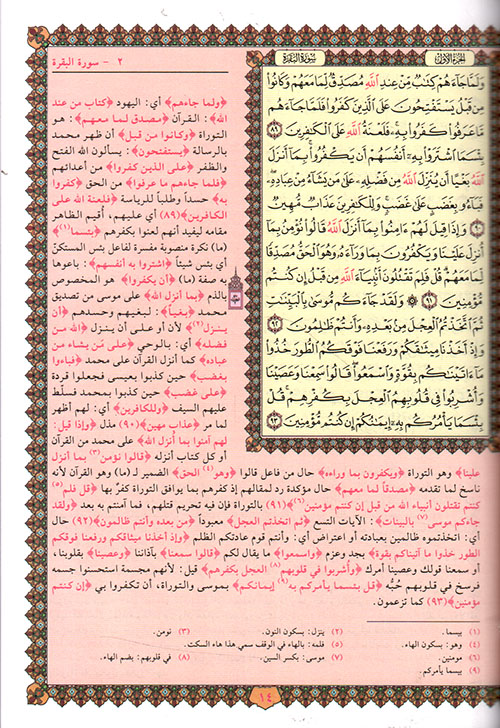 الجزء الأول
سورة البقرة
٢ - سورة البقرة
وَلَمَّا جَآءَهُمْ كِتَٰبٌ مِّنْ عِندِ ٱللَّهِ مُصَدِّقٌ لِّمَا مَعَهُمْ وَكَانُوا۟
مِن قَبْلُ يَسْتَفْتِحُونَ عَلَى ٱلَّذِينَ كَفَرُوا۟ فَلَمَّا جَآءَهُم
مَّا عَرَفُوا۟ كَفَرُوا۟ بِهِۦ ۚ فَلَعْنَةُ ٱللَّهِ عَلَى ٱلْكَٰفِرِينَ ٨٩
بِئْسَمَا ٱشْتَرَوْا۟ بِهِۦٓ أَنفُسَهُمْ أَن يَكْفُرُوا۟ بِمَآ أَنزَلَ
ٱللَّهُ بَغْيًا أَن يُنَزِّلَ ٱللَّهُ مِن فَضْلِهِۦ عَلَىٰ مَن يَشَآءُ مِنْ عِبَادِهِۦ ۖ
فَبَآءُو بِغَضَبٍ عَلَىٰ غَضَبٍ ۚ وَلِلْكَٰفِرِينَ عَذَابٌ مُّهِينٌ
٩٠ وَإِذَا قِيلَ لَهُمْ ءَامِنُوا۟ بِمَآ أَنزَلَ ٱللَّهُ قَالُوا۟ نُؤْمِنُ بِمَآ
أُنزِلَ عَلَيْنَا وَيَكْفُرُونَ بِمَا وَرَآءَهُۥ وَهُوَ ٱلْحَقُّ مُصَدِّقًا
لِّمَا مَعَهُمْ ۗ قُلْ فَلِمَ تَقْتُلُونَ أَنۢبِيَآءَ ٱللَّهِ مِن قَبْلُ إِن كُنتُم
مُّؤْمِنِينَ ٩١ ۞ وَلَقَدْ جَآءَكُم مُّوسَىٰ بِٱلْبَيِّنَٰتِ
ثُمَّ ٱتَّخَذْتُمُ ٱلْعِجْلَ مِنۢ بَعْدِهِۦ وَأَنتُمْ ظَٰلِمُونَ ٩٢
وَإِذْ أَخَذْنَا مِيثَٰقَكُمْ وَرَفَعْنَا فَوْقَكُمُ ٱلطُّورَ خُذُوا۟
مَآ ءَاتَيْنَٰكُم بِقُوَّةٍ وَٱسْمَعُوا۟ ۖ قَالُوا۟ سَمِعْنَا وَعَصَيْنَا
وَأُشْرِبُوا۟ فِى قُلُوبِهِمُ ٱلْعِجْلَ بِكُفْرِهِمْ ۚ قُلْ
بِئْسَمَا يَأْمُرُكُم بِهِۦٓ إِيمَٰنُكُمْ إِن كُنتُم مُّؤْمِنِينَ ٩٣
﴿ولما جاءهم﴾ أي: اليهود ﴿كتاب من عند
الله﴾: القرآن ﴿مصدق لما معهم﴾: هو
التوراة ﴿وكانوا من قبل﴾ أن ظهر محمد
بالرسالة ﴿يستفتحون﴾: يسألون الله الفتح
والظفر ﴿على الذين كفروا﴾ من أعدائهم
﴿فلما جاءهم ما عرفوا﴾ من الحق ﴿كفروا
به﴾ حسداً وطلباً للرياسة ﴿فلعنة الله على
الكافرين﴾(٨٩) أي عليهم، أقيم الظاهر
مقامه ليفيد أنهم لعنوا بكفرهم ﴿بئسما﴾(١)
(ما) نكرة منصوبة مفسرة لفاعل بئس المستكنّ
أي بئس شيئاً ﴿اشتروا به أنفسهم﴾: باعوها
به صفة (ما) ﴿أن يكفروا﴾ هو المخصوص
بالذم ﴿بما أنزل الله﴾ على موسى من تصديق
محمد ﴿بغياً﴾: لبغيهم وحسدهم ﴿أن
ينزل﴾(٢) لأن أو على أن ينزل ﴿الله من
فضله﴾ أي: بالوحي ﴿على من يشاء من
عباده﴾ كما أنزل القرآن على محمد ﴿فباءوا
بغضب﴾ حين كذبوا بعيسى فجعلوا قردة
﴿على غضب﴾ حين كذبوا بمحمد فسلّط
عليهم السيف ﴿وللكافرين﴾ أي: لهم أظهر
لما مر ﴿عذاب مهين﴾(٩٠) مذل ﴿وإذا قيل:
لهم آمنوا بما أنزل الله﴾ على محمد من القرآن
أو كل كتاب أنزله ﴿قالوا نؤمن(٣) بما أنزل
علينا﴾ وهو التوراة ﴿ويكفرون بما وراءه﴾ حال من فاعل قالوا ﴿وهو(٤) الحق﴾ الضمير لـ (ما) وهو القرآن لأنه
ناسخ لما تقدمه ﴿مصدقاً لما معهم﴾ حال مؤكدة رد لمقالهم إذ كفرهم بما يوافق التوراة كفرٌ بها ﴿قل فلم(٥)
تقتلون أنبياء الله من قبل إن كنتم مؤمنين(٦)﴾(٩١) بالتوراة فإن فيه تحريم قتلهم، فما آمنتم به بعد ﴿ولقد
جاءكم موسى(٧) بالبينات﴾: الآيات التسع ﴿ثم اتخذتم العجل﴾ معبوداً ﴿من بعده وأنتم ظالمون﴾(٩٢) حال
أي: اتخذتموه ظالمين بعبادته أو اعتراض أي: وأنتم قوم عادتكم الظلم ﴿وإذ أخذنا ميثاقكم ورفعنا فوقكم
الطور خذوا ما آتيناكم بقوة﴾ بجد وعزم ﴿واسمعوا﴾ ما يقال لكم ﴿قالوا سمعنا﴾ بآذاننا ﴿وعصينا﴾ بقلوبنا،
أو سمعنا قولك وعصينا أمرك ﴿وأشربوا في قلوبهم(٨) العجل بكفرهم﴾ قيل: لأنهم مجسمة استحسنوا جسمه
فرسخ في قلوبهم حُبُّه ﴿قل بئسما يأمركم به(٩) إيمانكم﴾ بموسى والتوراة، أن تكفروا بي ﴿إن كنتم
مؤمنين﴾(٩٣) كما تزعمون.
(١) بيسما. (٢) ينزل: بسكون النون. (٣) نومن.
(٤) وهو: بسكون الهاء. (٥) فلمه: بالهاء في الوقف سمي هذا هاء السكت.
(٦) مومنين. (٧) موسى: بكسر السين. (٨) في قلوبهم: بضم الهاء.
(٩) بيسما يأمركم.
١٤